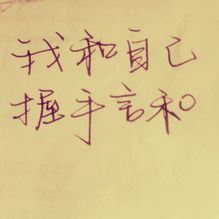 我和自己
握手言和